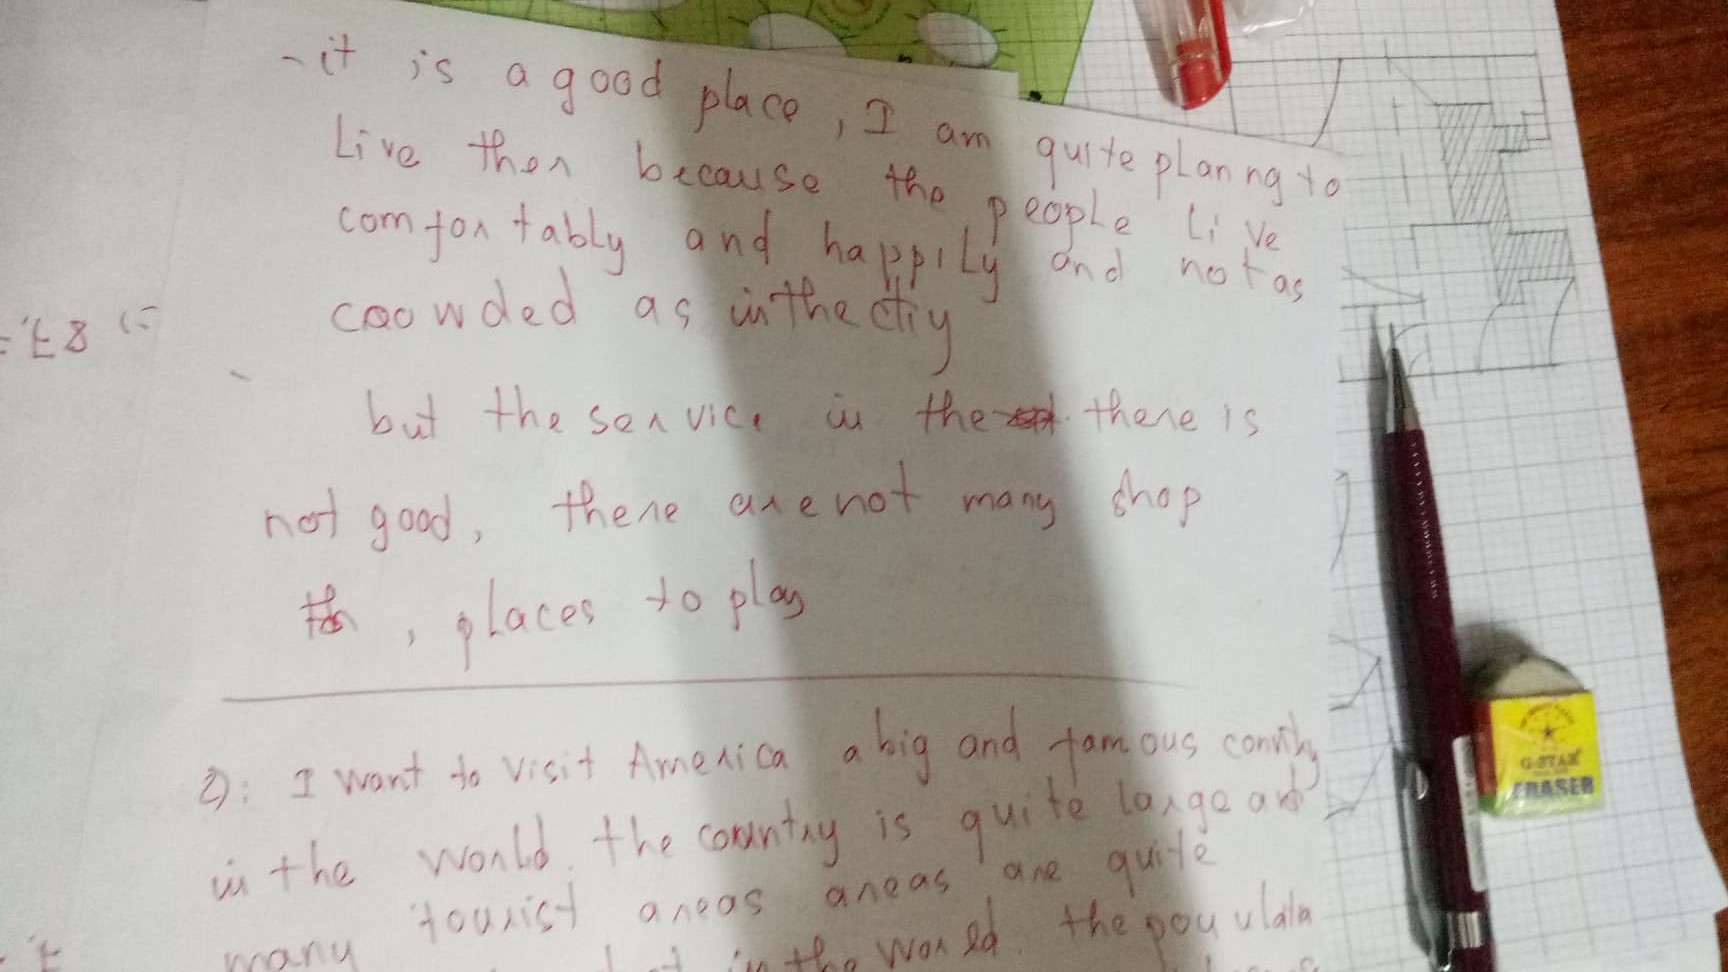 -it is a good place, I am quite planng to
Live then because the people live
comfortably and happily and not as
croowded as in the ctiy
but the service in the there is
not good, there are not many shop
, places to play
2): I want to visit America a big and famous
in the world. the country is quite large and
many tourist areas areas are quite
in the world. the
G-STAR
ERASER